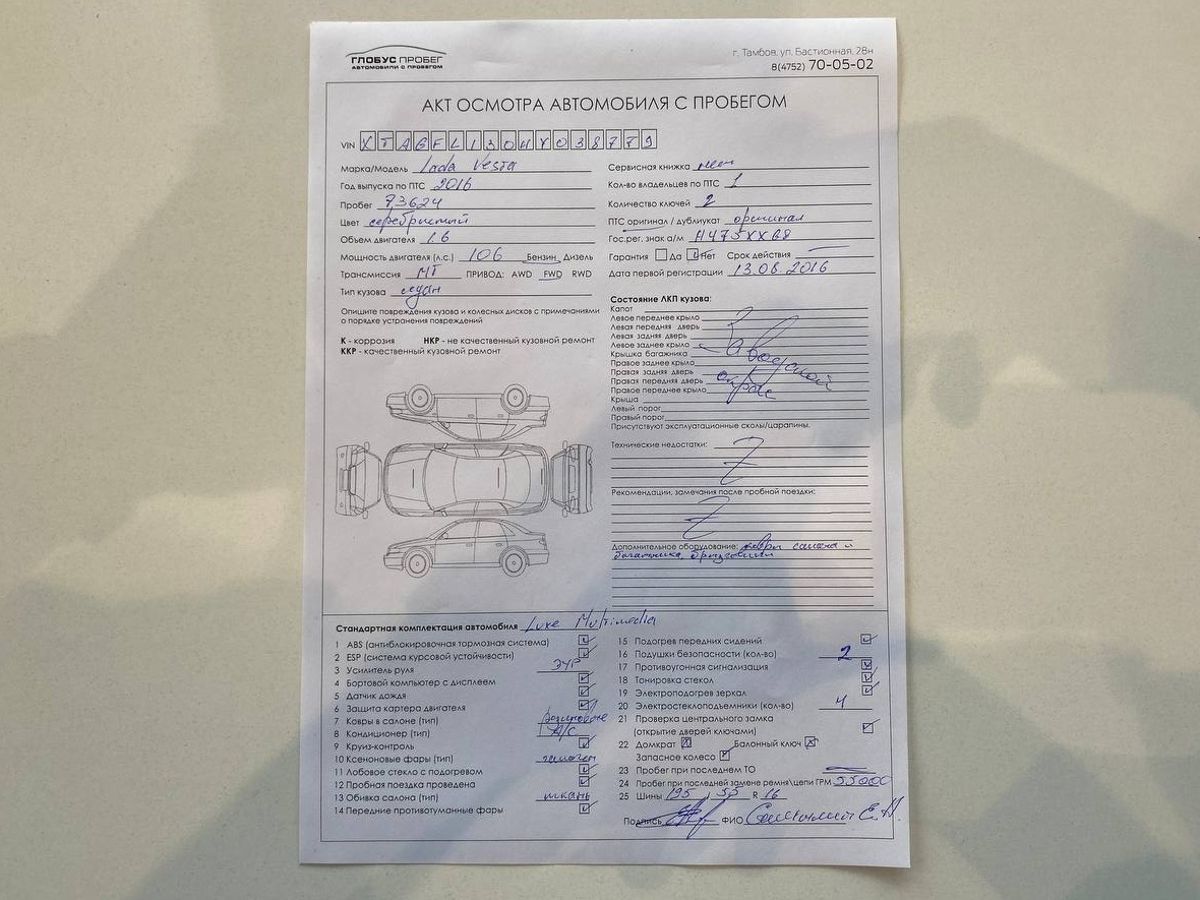 ГЛОБУС ПРОБЕГ
АВТОМОБИЛИ С ПРОБЕГОМ
г. Тамбов, ул. Бастионная, 28н
8(4752) 70-05-02
АКТ ОСМОТРА АВТОМОБИЛЯ С ПРОБЕГОМ
VIN XTAGFL130HY038779
Марка/Модель Lada Vesta
Год выпуска по ПТС 2016
Пробег 73624
Цвет серебристый
Объем двигателя 1.6
Мощность двигателя (л.с.) 106 Бензин Дизель
Трансмиссия МТ ПРИВОД: AWD FWD RWD
Тип кузова седан
Опишите повреждения кузова и колесных дисков с примечаниями
о порядке устранения повреждений
К - коррозия НКР - не качественный кузовной ремонт
ККР - качественный кузовной ремонт
Сервисная книжка нет
Кол-во владельцев по ПТС 1
Количество ключей 2
ПТС оригинал / дубликат оригинал
Гос.рег. знак а/м Н475ХХ68
Гарантия Да Нет Срок действия
Дата первой регистрации 13.08.2016
Состояние ЛКП кузова:
Капот
Левое переднее крыло
Левая передняя дверь
Левая задняя дверь
Левое заднее крыло
Крышка багажника
Правое заднее крыло
Правая задняя дверь
Правая передняя дверь
Правое переднее крыло
Крыша
Левый порог
Правый порог
Заводской
окрас
Присутствуют эксплуатационные сколы/царапины.
Технические недостатки: Z
Рекомендации, замечания после пробной поездки:
Z
Дополнительное оборудование: ковры салона и
багажника, брызговики
Стандартная комплектация автомобиля Luxe Multimedia
1 ABS (антиблокировочная тормозная система)
2 ESP (система курсовой устойчивости)
3 Усилитель руля ЭУР
4 Бортовой компьютер с дисплеем
5 Датчик дождя
6 Защита картера двигателя
7 Ковры в салоне (тип) резиновые
8 Кондиционер (тип) A/C
9 Круиз-контроль
10 Ксеноновые фары (тип) галоген
11 Лобовое стекло с подогревом
12 Пробная поездка проведена
13 Обивка салона (тип) ткань
14 Передние противотуманные фары
15 Подогрев передних сидений
16 Подушки безопасности (кол-во) 2
17 Противоугонная сигнализация
18 Тонировка стекол
19 Электроподогрев зеркал
20 Электростеклоподъемники (кол-во) 4
21 Проверка центрального замка
(открытие дверей ключами)
22 Домкрат Балонный ключ
Запасное колесо
23 Пробег при последнем ТО
24 Пробег при последней замене ремня\цепи ГРМ 55000
25 Шины 195 / 55 R 16
Подпись ФИО